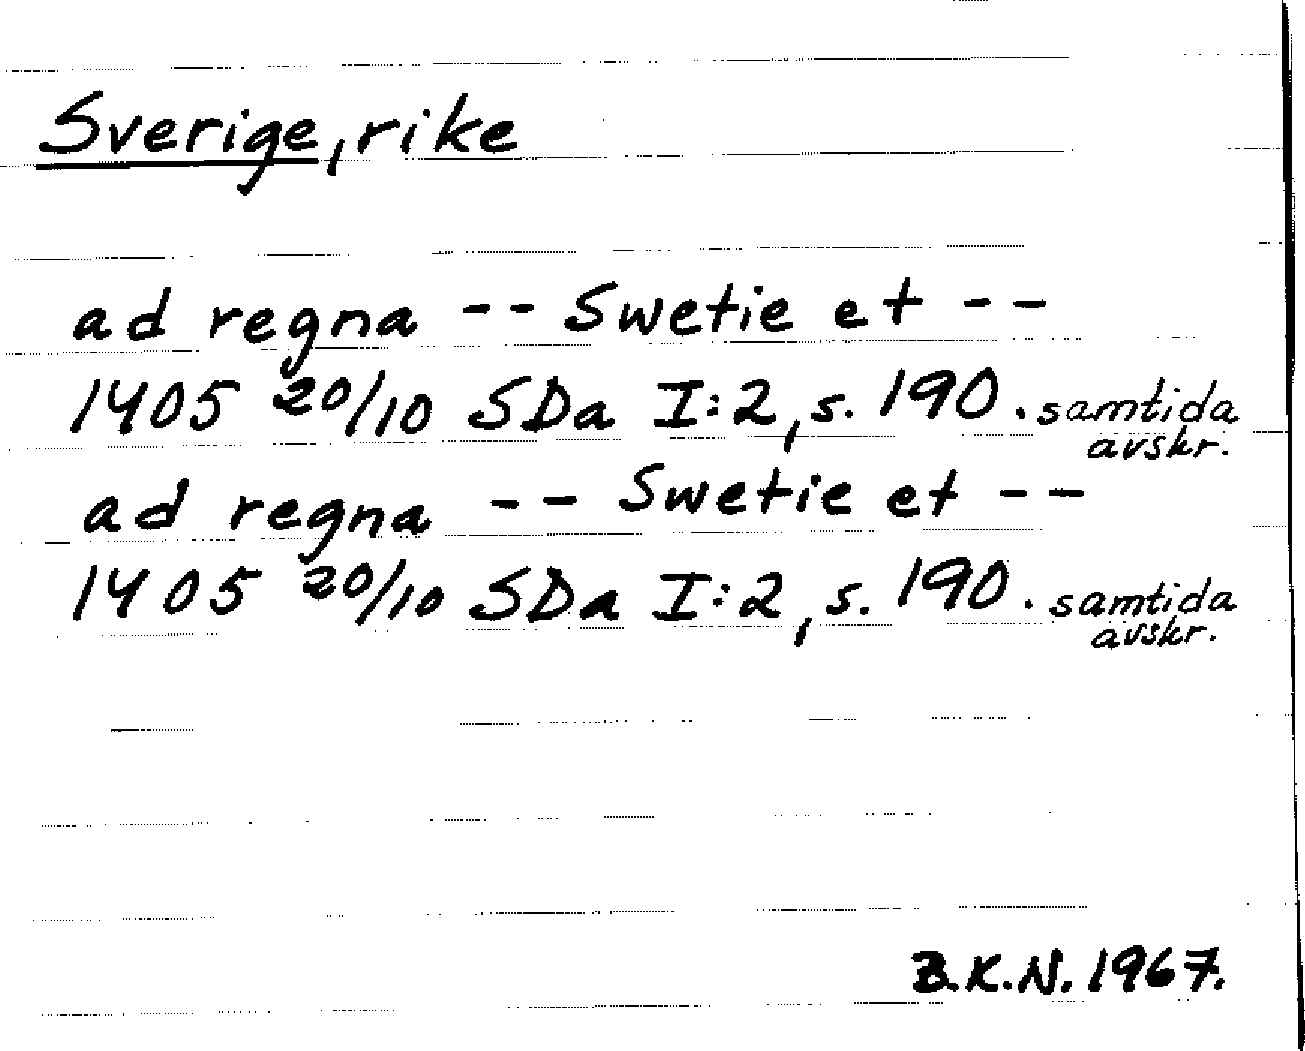 Sverige, rike
ad regna -- Swetie et --
1405 20/10 SDa I:2, s. 190. samtida
avskr.
ad regna -- Swetie et --
1405 20/10 SDa I:2, s. 190. samtida
avskr.
B.K.N. 1967.